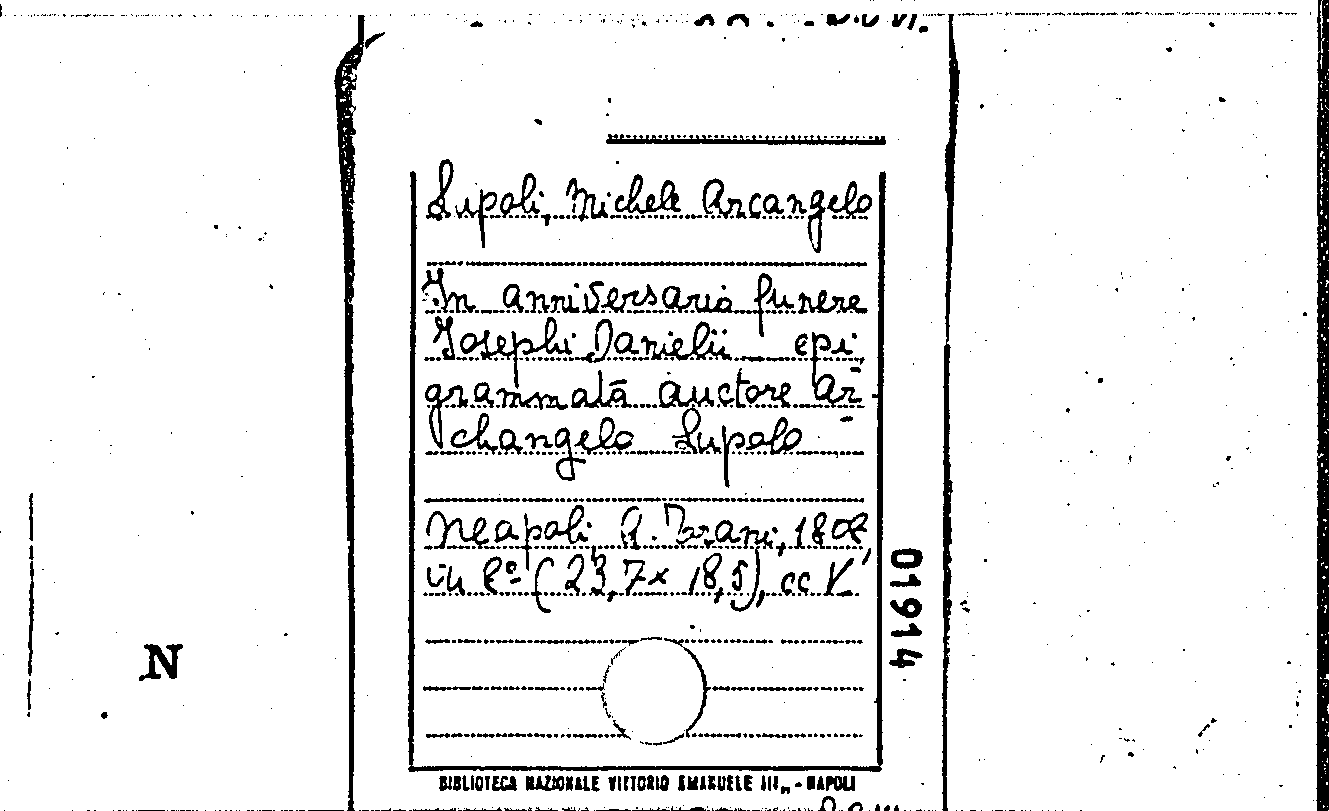 Lupoli, Michele Arcangelo
In anniversario funere
Josephi Danielii epi
grammata auctore Ar-
changelo Lupolo
Neapoli, A. Trani, 1808,
in 8º (23,7x 18,5), cc V
01914
N
BIBLIOTECA NAZIONALE VITTORIO EMANUELE III„ - NAPOLI